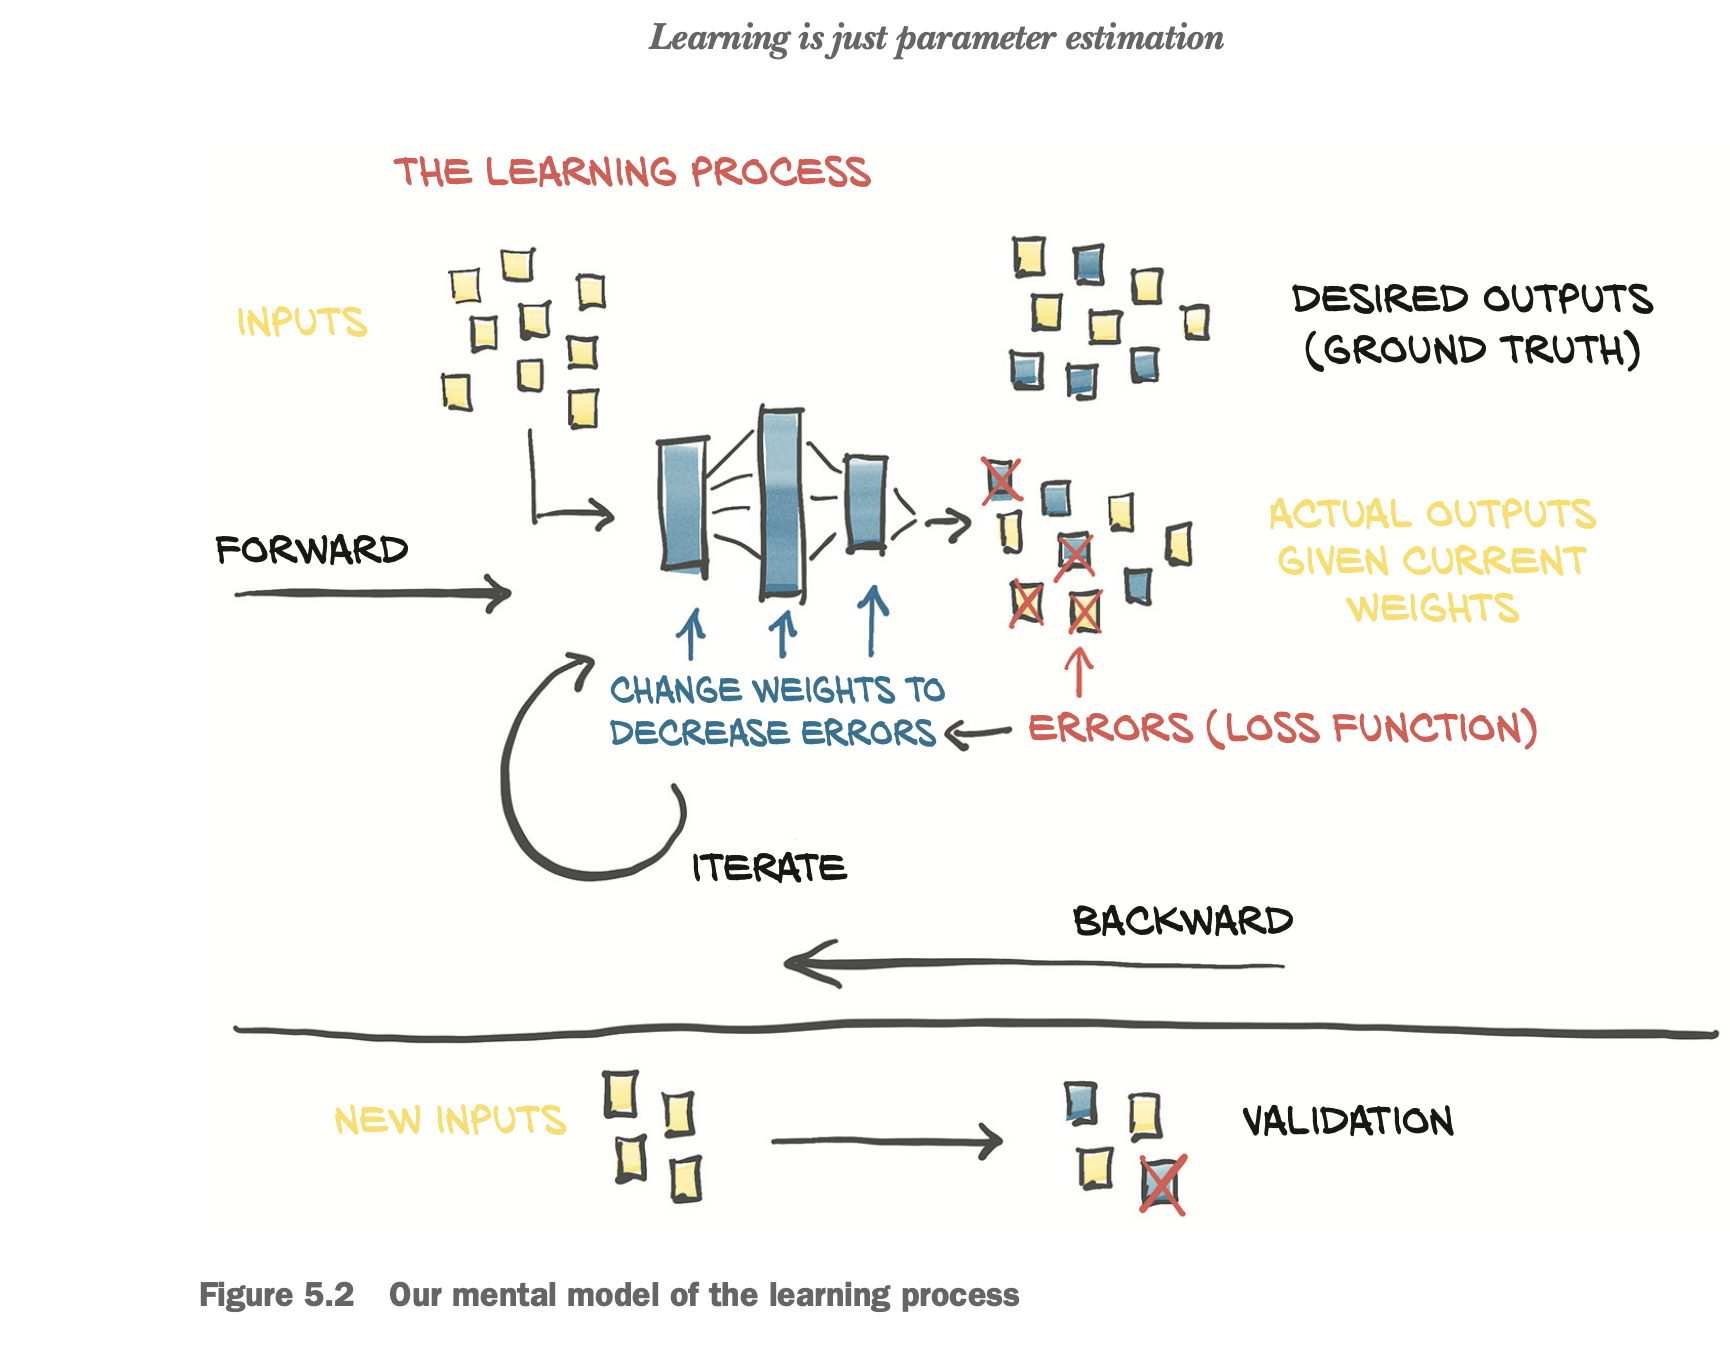 Learning is just parameter estimation
THE LEARNING PROCESS
INPUTS
DESIRED OUTPUTS
(GROUND TRUTH)
FORWARD
ACTUAL OUTPUTS
GIVEN CURRENT
WEIGHTS
CHANGE WEIGHTS TO
DECREASE ERRORS
ERRORS (LOSS FUNCTION)
ITERATE
BACKWARD
NEW INPUTS
VALIDATION
Figure 5.2 Our mental model of the learning process